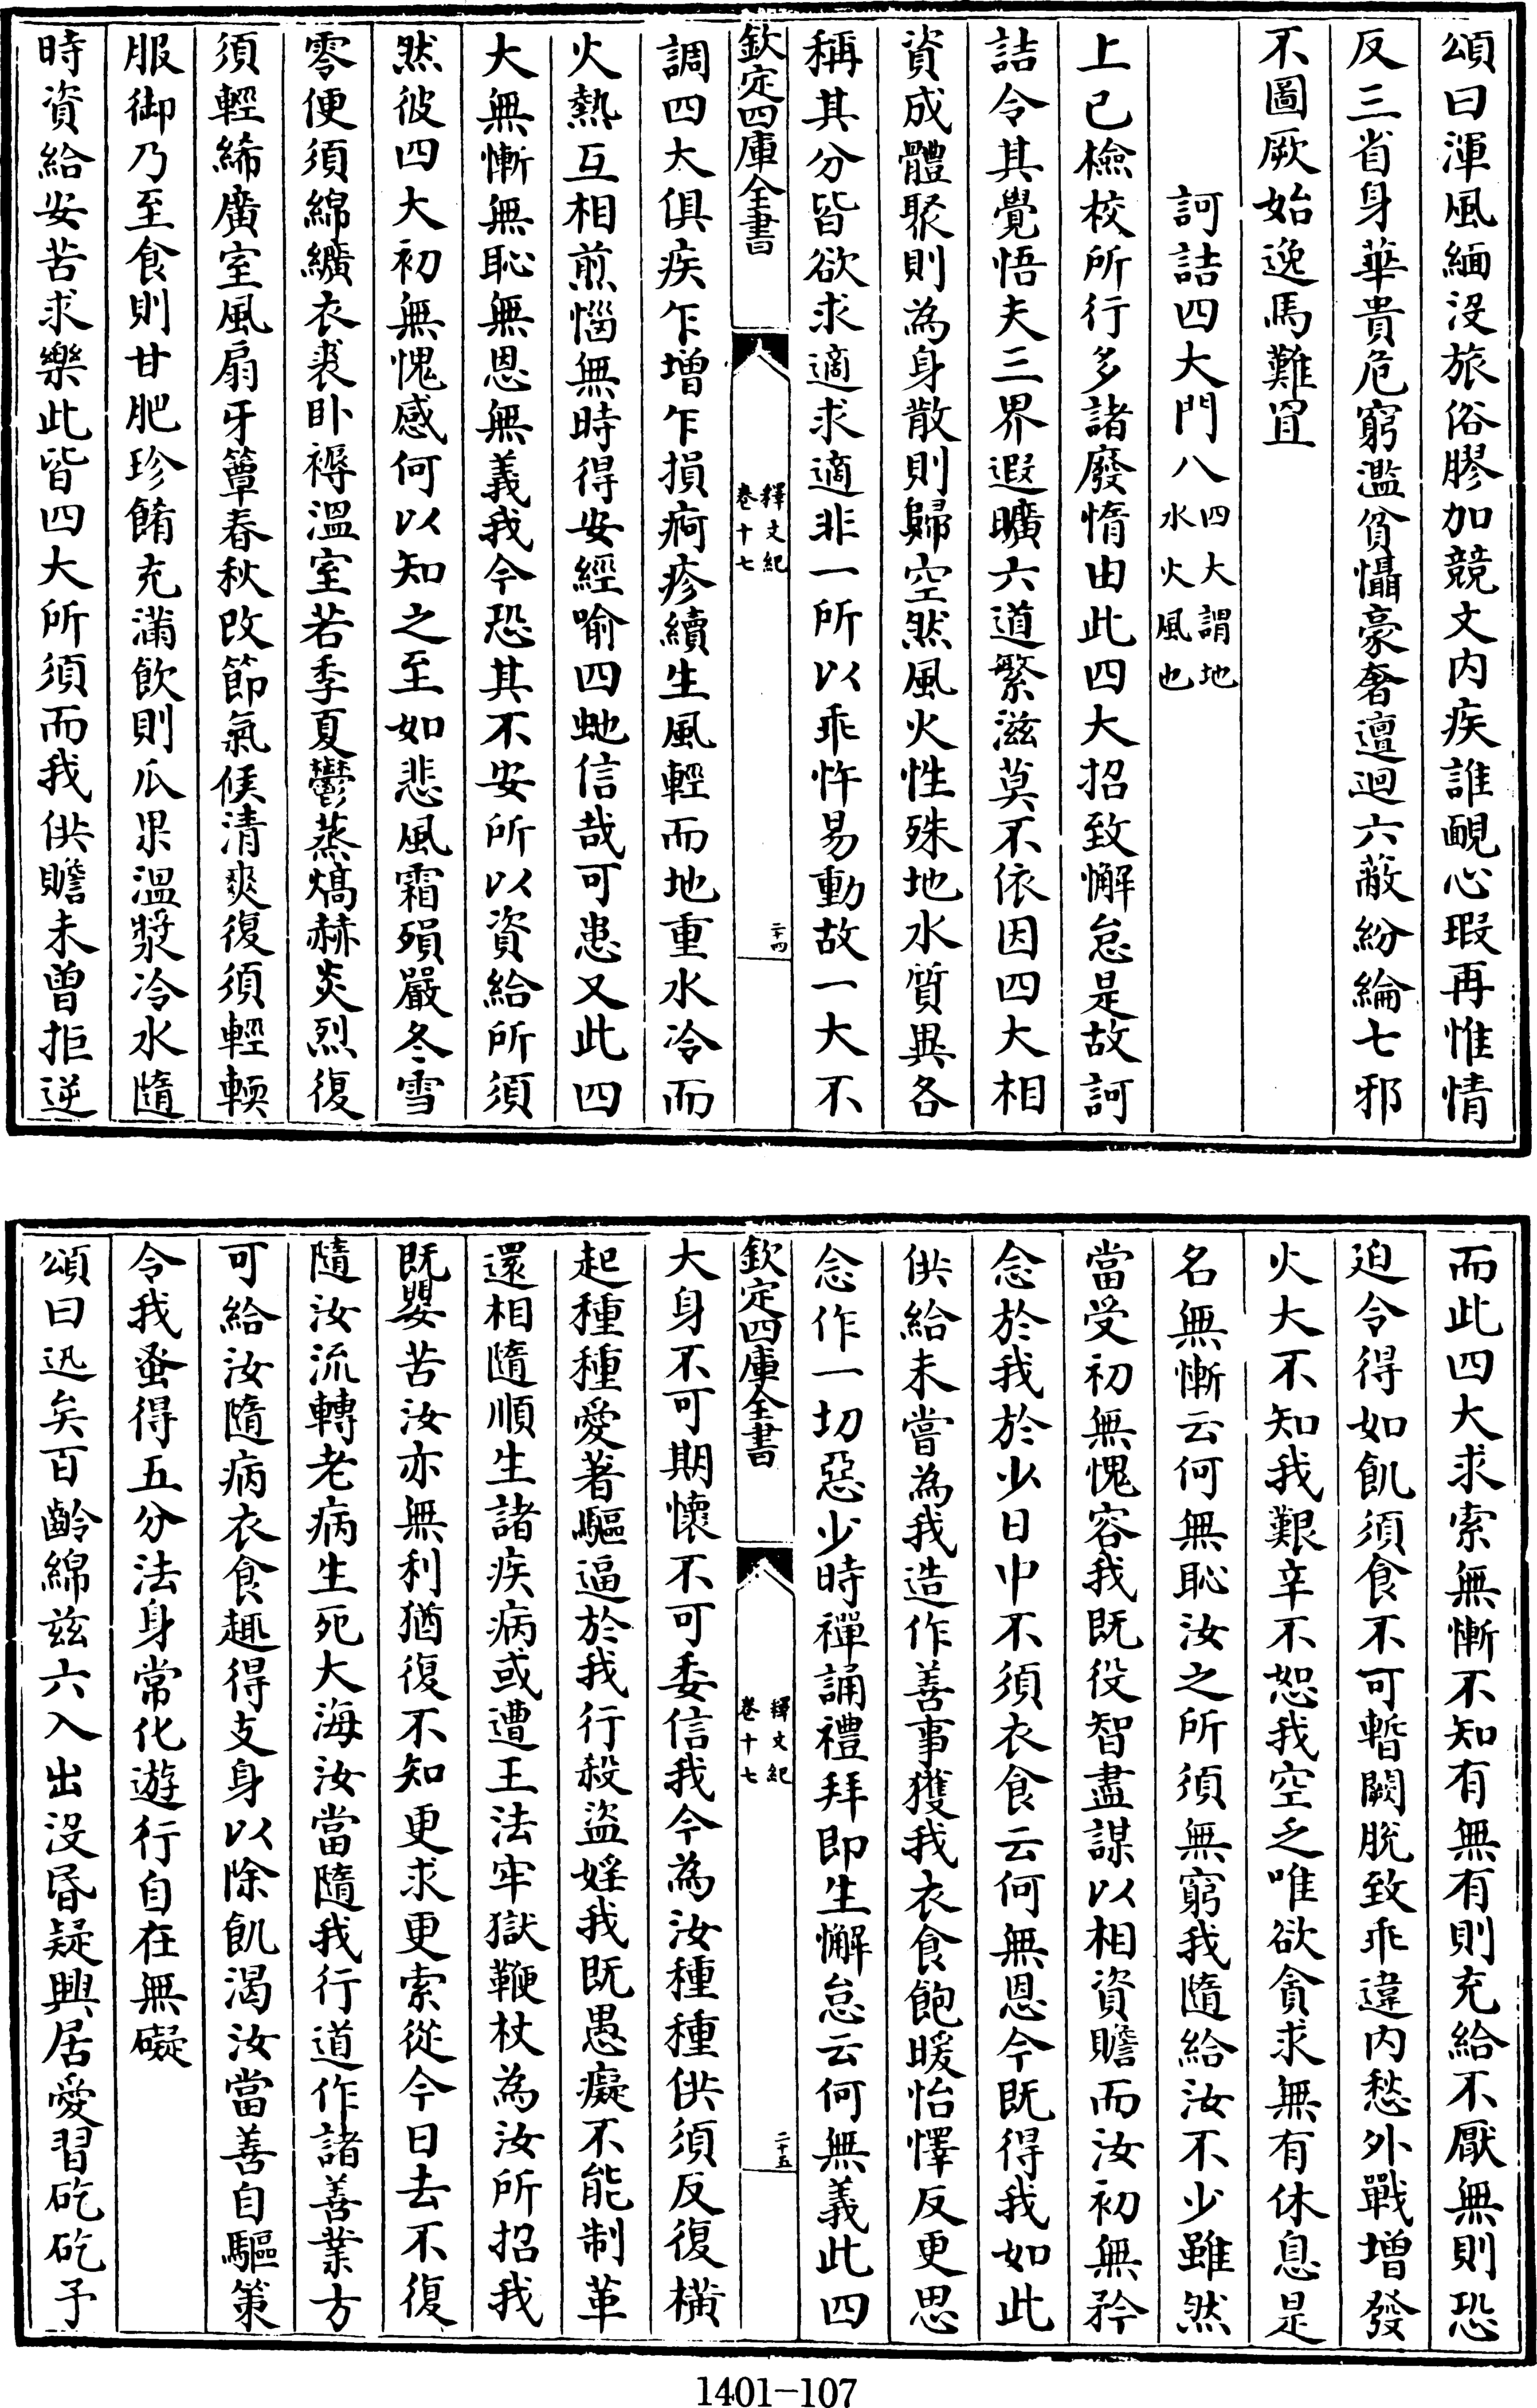 頌曰渾風緬没旅俗膠加競文内疾誰覿心瑕再惟情
反三省身華貴危窮濫貧懾豪奢邅迴六蔽紛綸七邪
不圖厥始逸馬難罝
訶詰四大門八四大謂地水火風也
上已檢校所行多諸廢惰由此四大招致懈怠是故訶
詰令其覺悟夫三界遐曠六道繁滋莫不依因四大相
資成體聚則為身散則歸空然風火性殊地水質異各
稱其分皆欲求適求適非一所以乖忤易動故一大不
欽定四庫全書
釋文紀
卷十七
二十四
調四大俱疾乍增乍損痾疹續生風輕而地重水冷而
火熱互相煎惱無時得安經喻四虵信哉可患又此四
大無慚無恥無恩無義我今恐其不安所以資給所須
然彼四大初無愧感何以知之至如悲風霜殞嚴冬雪
零便須綿纊衣裘卧褥溫室若季夏鬱蒸熇赫炎烈復
須輕絺廣室風扇牙簟春秋改節氣候清爽復須輕輭
服御乃至食則甘肥珍餚充滿飲則瓜果溫漿冷水隨
時資給安苦求樂此皆四大所須而我供贍未曾拒逆
而此四大求索無慚不知有無有則充給不厭無則恐
迫令得如飢須食不可暫闕脱致乖違内愁外戰增發
火大不知我艱辛不恕我空乏唯欲貪求無有休息是
名無慚云何無恥汝之所須無窮我隨給汝不少雖然
當受初無愧容我既役智盡謀以相資贍而汝初無矜
念於我於少日中不須衣食云何無恩今既得我如此
供給未嘗為我造作善事獲我衣食飽暖怡懌反更思
念作一切惡少時禪誦禮拜即生懈怠云何無義此四
欽定四庫全書
釋文紀
卷十七
二十五
大身不可期懷不可委信我今為汝種種供須反復横
起種種愛著驅逼於我行殺盜婬我既愚癡不能制革
還相隨順生諸疾病或遭王法牢獄鞭杖為汝所招我
既嬰苦汝亦無利猶復不知更求更索從今日去不復
隨汝流轉老病生死大海汝當隨我行道作諸善業方
可給汝隨病衣食趣得支身以除飢渴汝當善自驅策
令我蚤得五分法身常化遊行自在無礙
頌曰迅矣百齡綿兹六入出没昏疑興居愛習矻矻予
1401-107